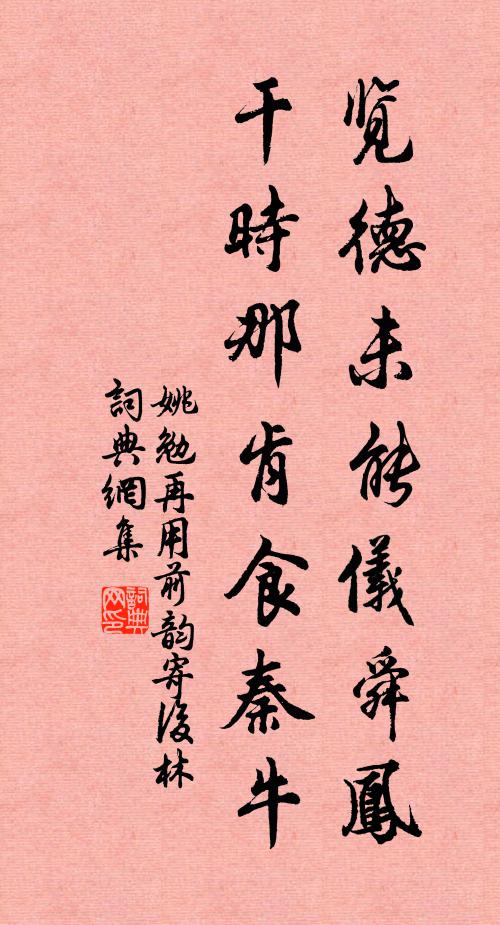 览德未能儀舜鳳
干時那肯食秦牛
姚勉再用前韵寄後林
詞典網集
詞典网印